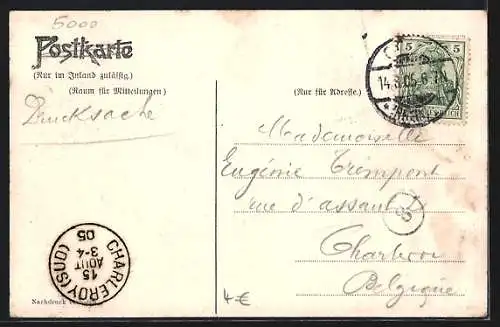 5000
Postkarte
(Nur im Inland zulässig.)
(Raum für Mitteilungen)
(Nur für Adresse.)
Drucksache
5 5
14.8.05.6-7N.
Mademoiselle
Eugénie Trempont
rue d'assaut
Charleroi
Belgique
CHARLEROY (SUD)
15
AOUT
3-4
05
Nachdruck
4€